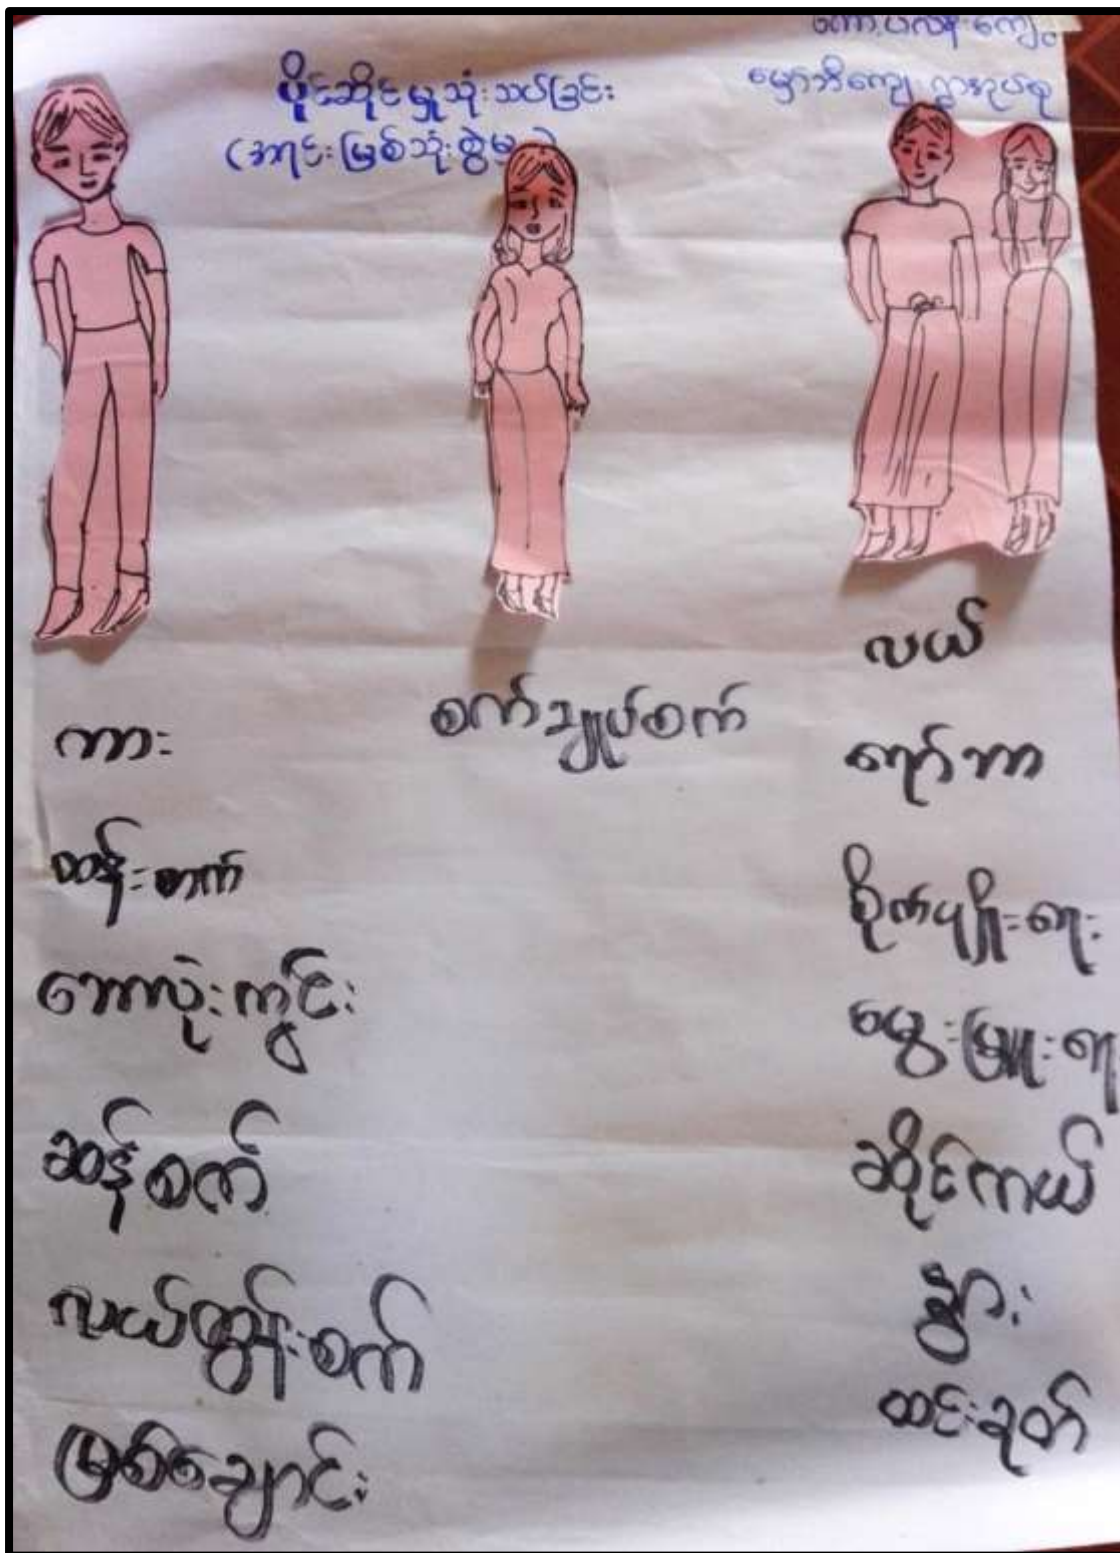 ပိုင်ဆိုင်မှုသုံးသပ်ခြင်း
(အရင်းမြစ်သုံးစွဲမှု)
ကျေးရွာအုပ်စု
ကား
ထန်းတက်
ဘောလုံးကွင်း
ဆန်စက်
လယ်ထွန်စက်
မြစ်ချောင်း
စက်ချုပ်စက်
လယ်
ရော်ဘာ
စိုက်ပျိုးရေး
မွေးမြူရေး
ဆိုင်ကယ်
နွား
ထင်းခုတ်